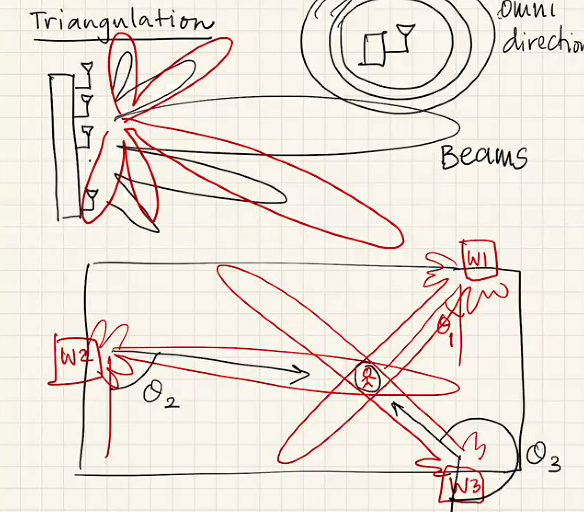 Triangulation
Omni
direction
Beams
W1
θ1
W2
θ2
θ3
W3